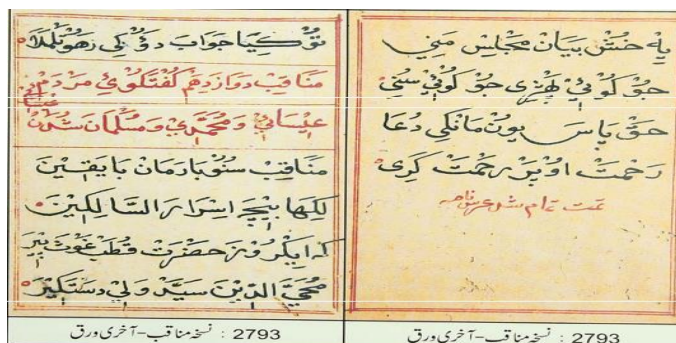 بیان مجلس منی
جو کوئی پڑھی جو کوئی سنی
حق پاس یون مانکی دعا
رحمت اوپر رحمت کری
تمت تمام شد
2793 : نسخہ مناقب - آخری ورق
کیا جواب
مناقب دوازدهم کفتکوئی مردم
عیسائی و محمدی و مسلمان شدن
مناقب سنو بارمان بایقین
لکھا بیچ اسرار السالکین
که ایکروز حضرت قطب غوث پیر
محی الدین سید ولی دستکیر
2793 : نسخہ مناقب - آخری ورق